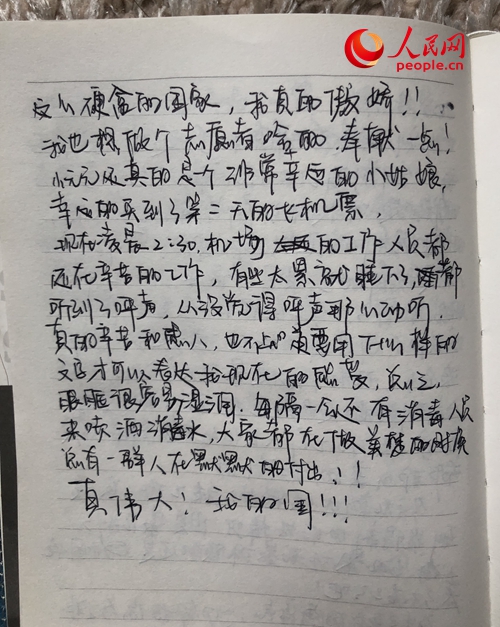 人民网
people.cn
这么硬盒的国家，我真的傲娇！！
我也想做个志愿者啥的，奉献一点！
小元元还真的是个非常幸运的小姑娘，
幸运的买到了第二天的飞机票，
现在凌晨2:30，机场的工作人员都
还在辛苦的工作，有些太累就睡下了，都
听到了呼声，从没觉得呼声那么动听，
真的辛苦和感人，也不知道要用什么样的
文字才可以表达我现在的感受，总之，
眼睛很容易湿润。每隔一会还有消毒人员
来喷洒消毒水，大家都在做美梦的时候
总有一群人在默默默默的付出！！
真伟大！我的国！！！